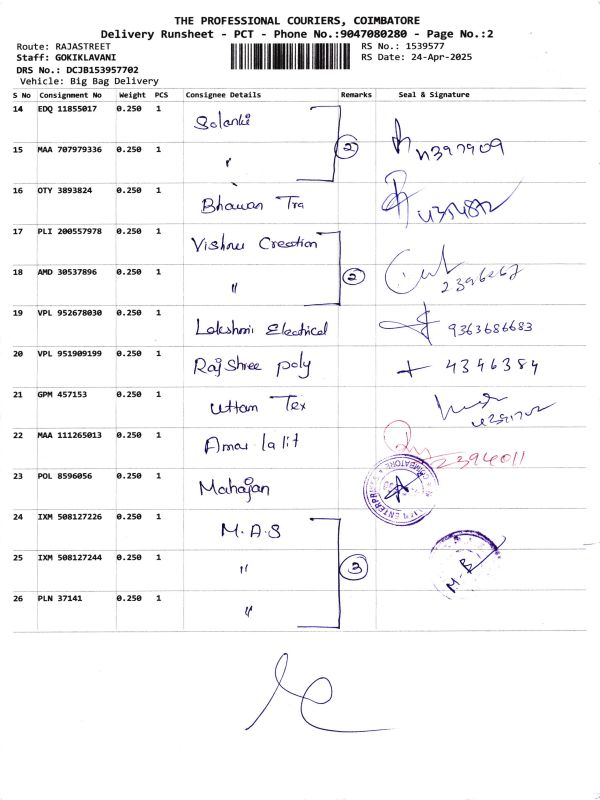 THE PROFESSIONAL COURIERS, COIMBATORE
Delivery Runsheet - PCT - Phone No.:9047080280 - Page No.:2
Route: RAJASTREET RS No.: 1539577
Staff: GOKIKLAVANI RS Date: 24-Apr-2025
DRS No.: DCJB153957702
Vehicle: Big Bag Delivery
S No Consignment No Weight PCS Consignee Details Remarks Seal & Signature
14 EDQ 11855017 0.250 1 Solanki
15 MAA 707979336 0.250 1 " 2
16 OTY 3893824 0.250 1 Bhawan Tra
17 PLI 200557978 0.250 1 Vishnu Creation
18 AMD 30537896 0.250 1 " 2
19 VPL 952678030 0.250 1 Lakshmi Electrical 9363686683
20 VPL 951909199 0.250 1 Raj Shree poly 4346384
21 GPM 457153 0.250 1 Uttam Tex
22 MAA 111265013 0.250 1 Amar lalit 2394011
23 POL 8596056 0.250 1 Mahajan
24 IXM 508127226 0.250 1 M.A.S
25 IXM 508127244 0.250 1 " 3
26 PLN 37141 0.250 1 "